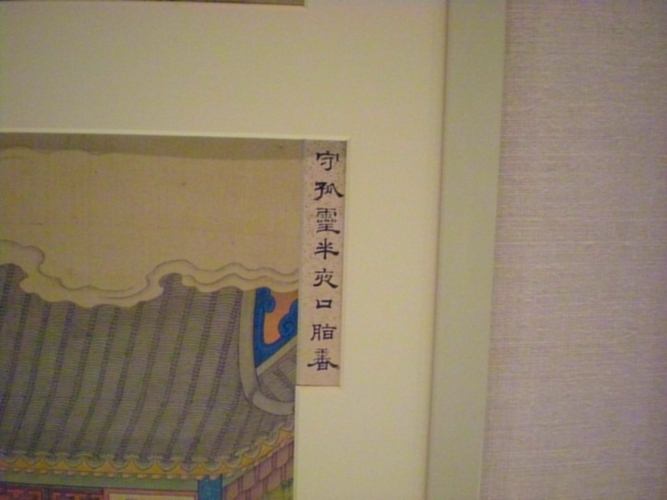 守孤靈半夜口脂香